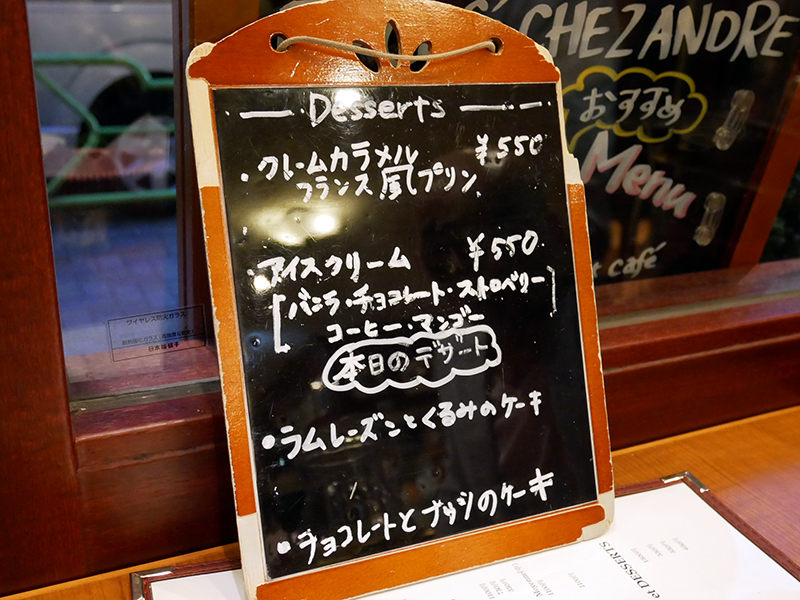 Desserts
・クレームカラメル ¥550
フランス風プリン
・アイスクリーム ¥550
[バニラ・チョコレート・ストロベリー
コーヒー・マンゴー]
本日のデザート
・ラムレーズンとくるみのケーキ
・チョコレートとナッツのケーキ
CHEZ ANDRE
おすすめ
Menu
café
ワイヤレス防火ガラス
et DESSERTS